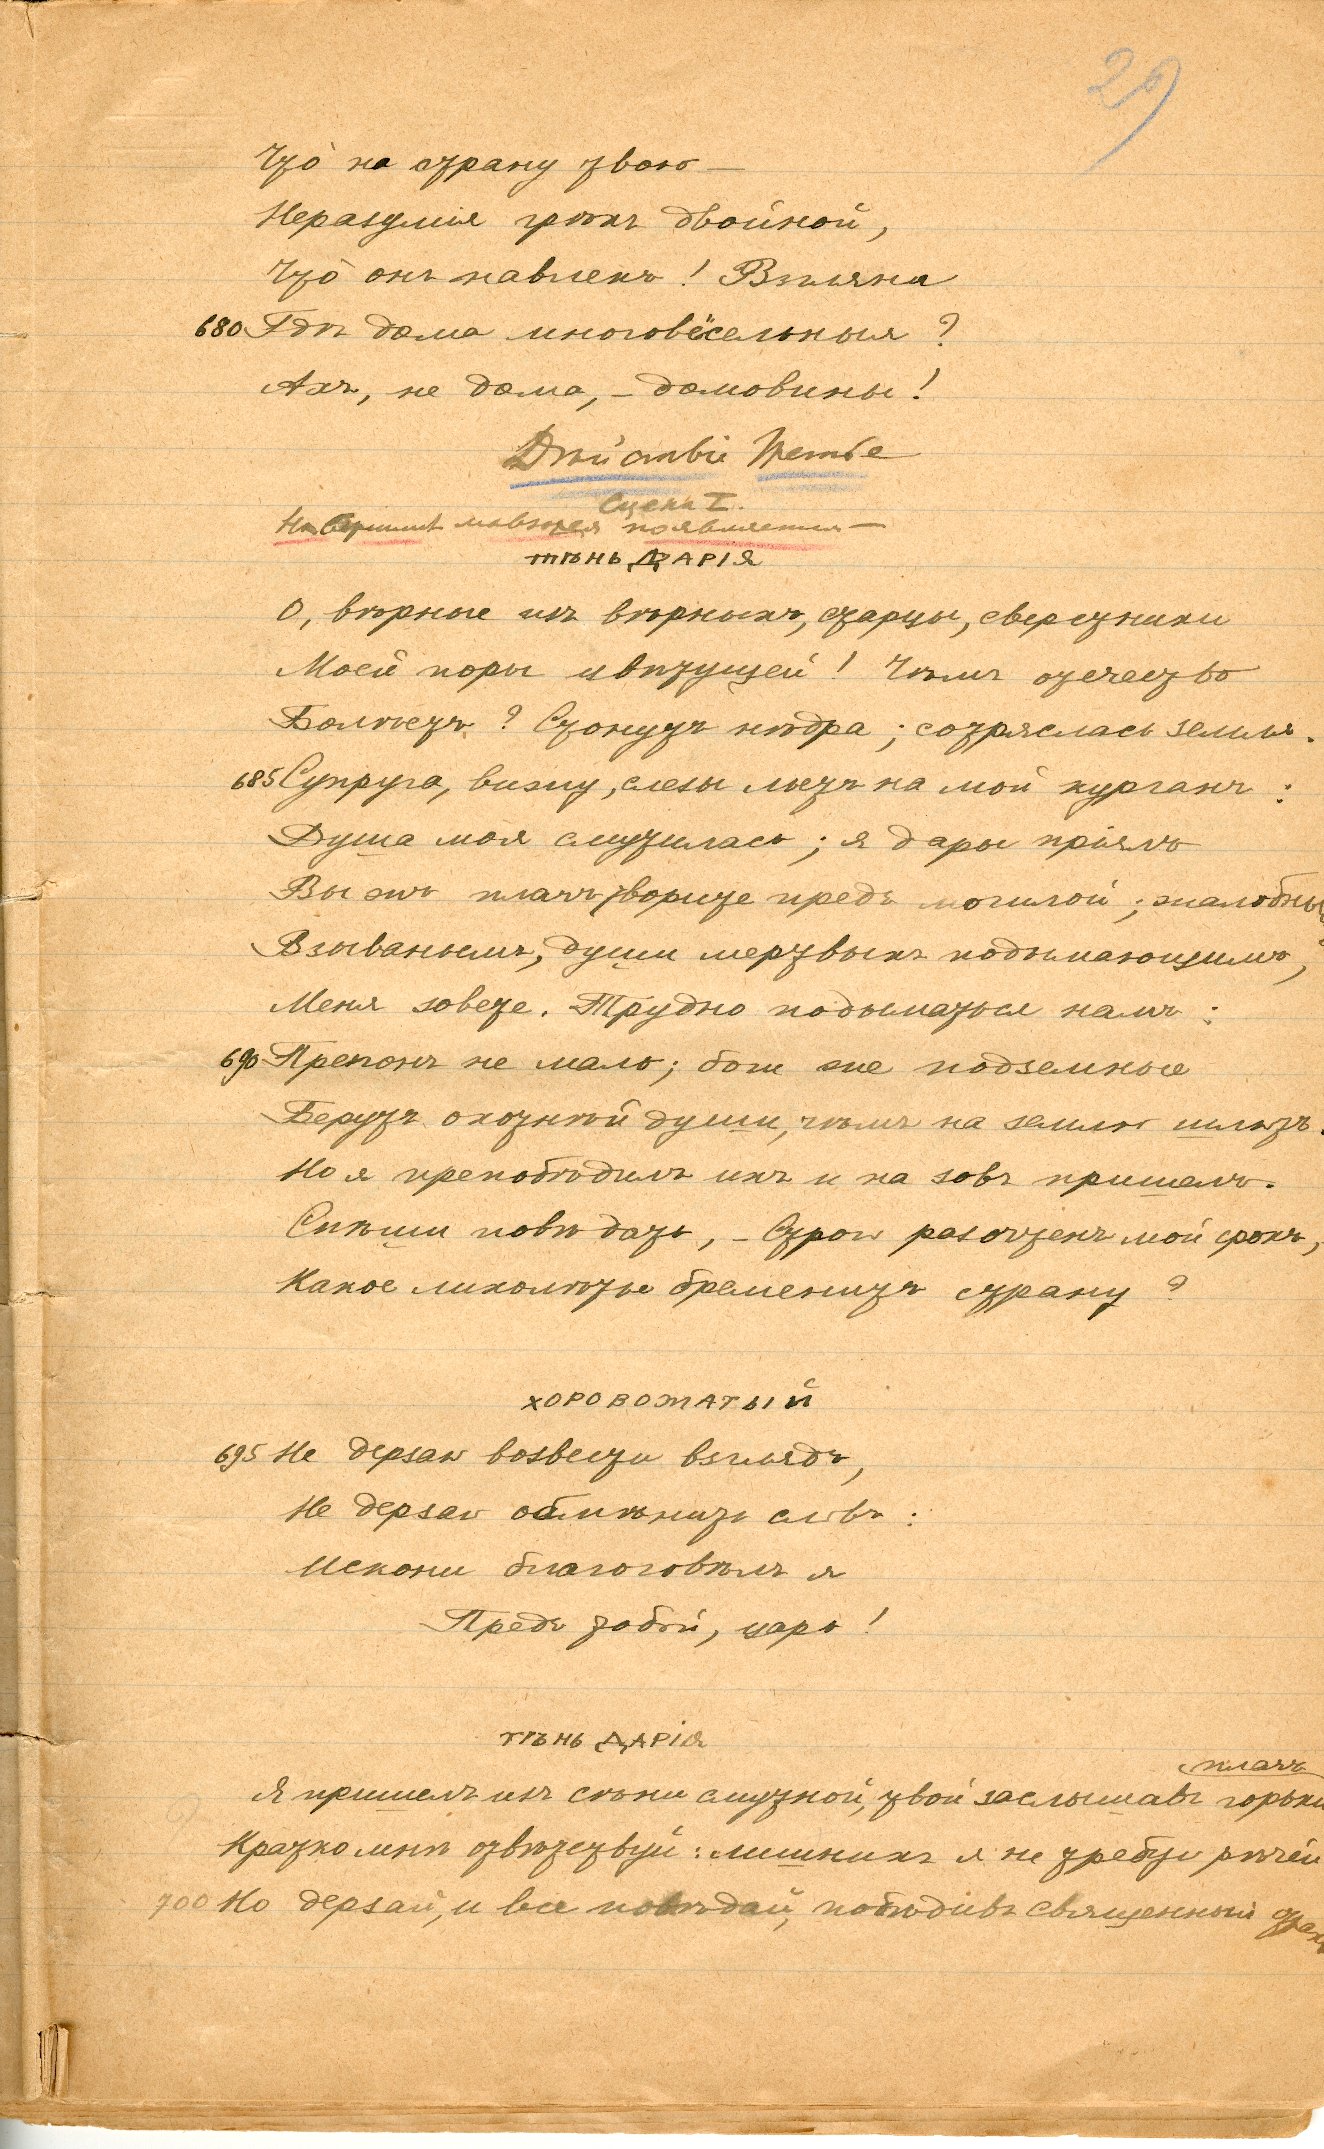 29
Что́ на страну твою —
Неразумія грѣхъ двойной,
Что́ онъ навлекъ! Взгляни
680 Гдѣ дома многовёсельныя?
Ахъ, не дома, – домовины!
Дѣйствіе Третье
Сцена I.
На вершинѣ мавзолея появляется —
ТѢНЬ ДАРІЯ
О, вѣрные изъ вѣрныхъ, старцы, сверстники
Моей поры цвѣтущей! Чѣмъ отечество
Болѣетъ? Стонутъ нѣдра; сотряслась земля.
685 Супруга, вижу, слезы льетъ на мой курганъ:
Душа моя смутилась; я дары пріялъ
Вы жъ плачъ творите предъ могилой; жалобным
Взываньемъ, души мертвыхъ подымающимъ,
Меня зовете. Трудно подыматься намъ:
690 Препонъ не мало; боги же подземные
Берутъ охотнѣй души, чѣмъ на землю шлютъ.
Но я препобѣдилъ ихъ и на зовъ пришелъ.
Спѣши повѣдать, – строго разочтенъ мой срокъ,
Какое лихолѣтье бременитъ страну?
ХОРОВОЖАТЫЙ
695 Не дерзаю возвести взглядъ,
Не дерзаю обмѣнить словъ:
Искони благоговѣлъ я
Предъ тобой, царь!
ТѢНЬ ДАРІЯ
плачъ
Я пришелъ изъ сѣни смутной, твой заслышавъ горьки
Кратко мнѣ отвѣтствуй: лишнихъ я не требую рѣчей
700 Но дерзай, и все повѣдай, побѣдивъ священный страхъ